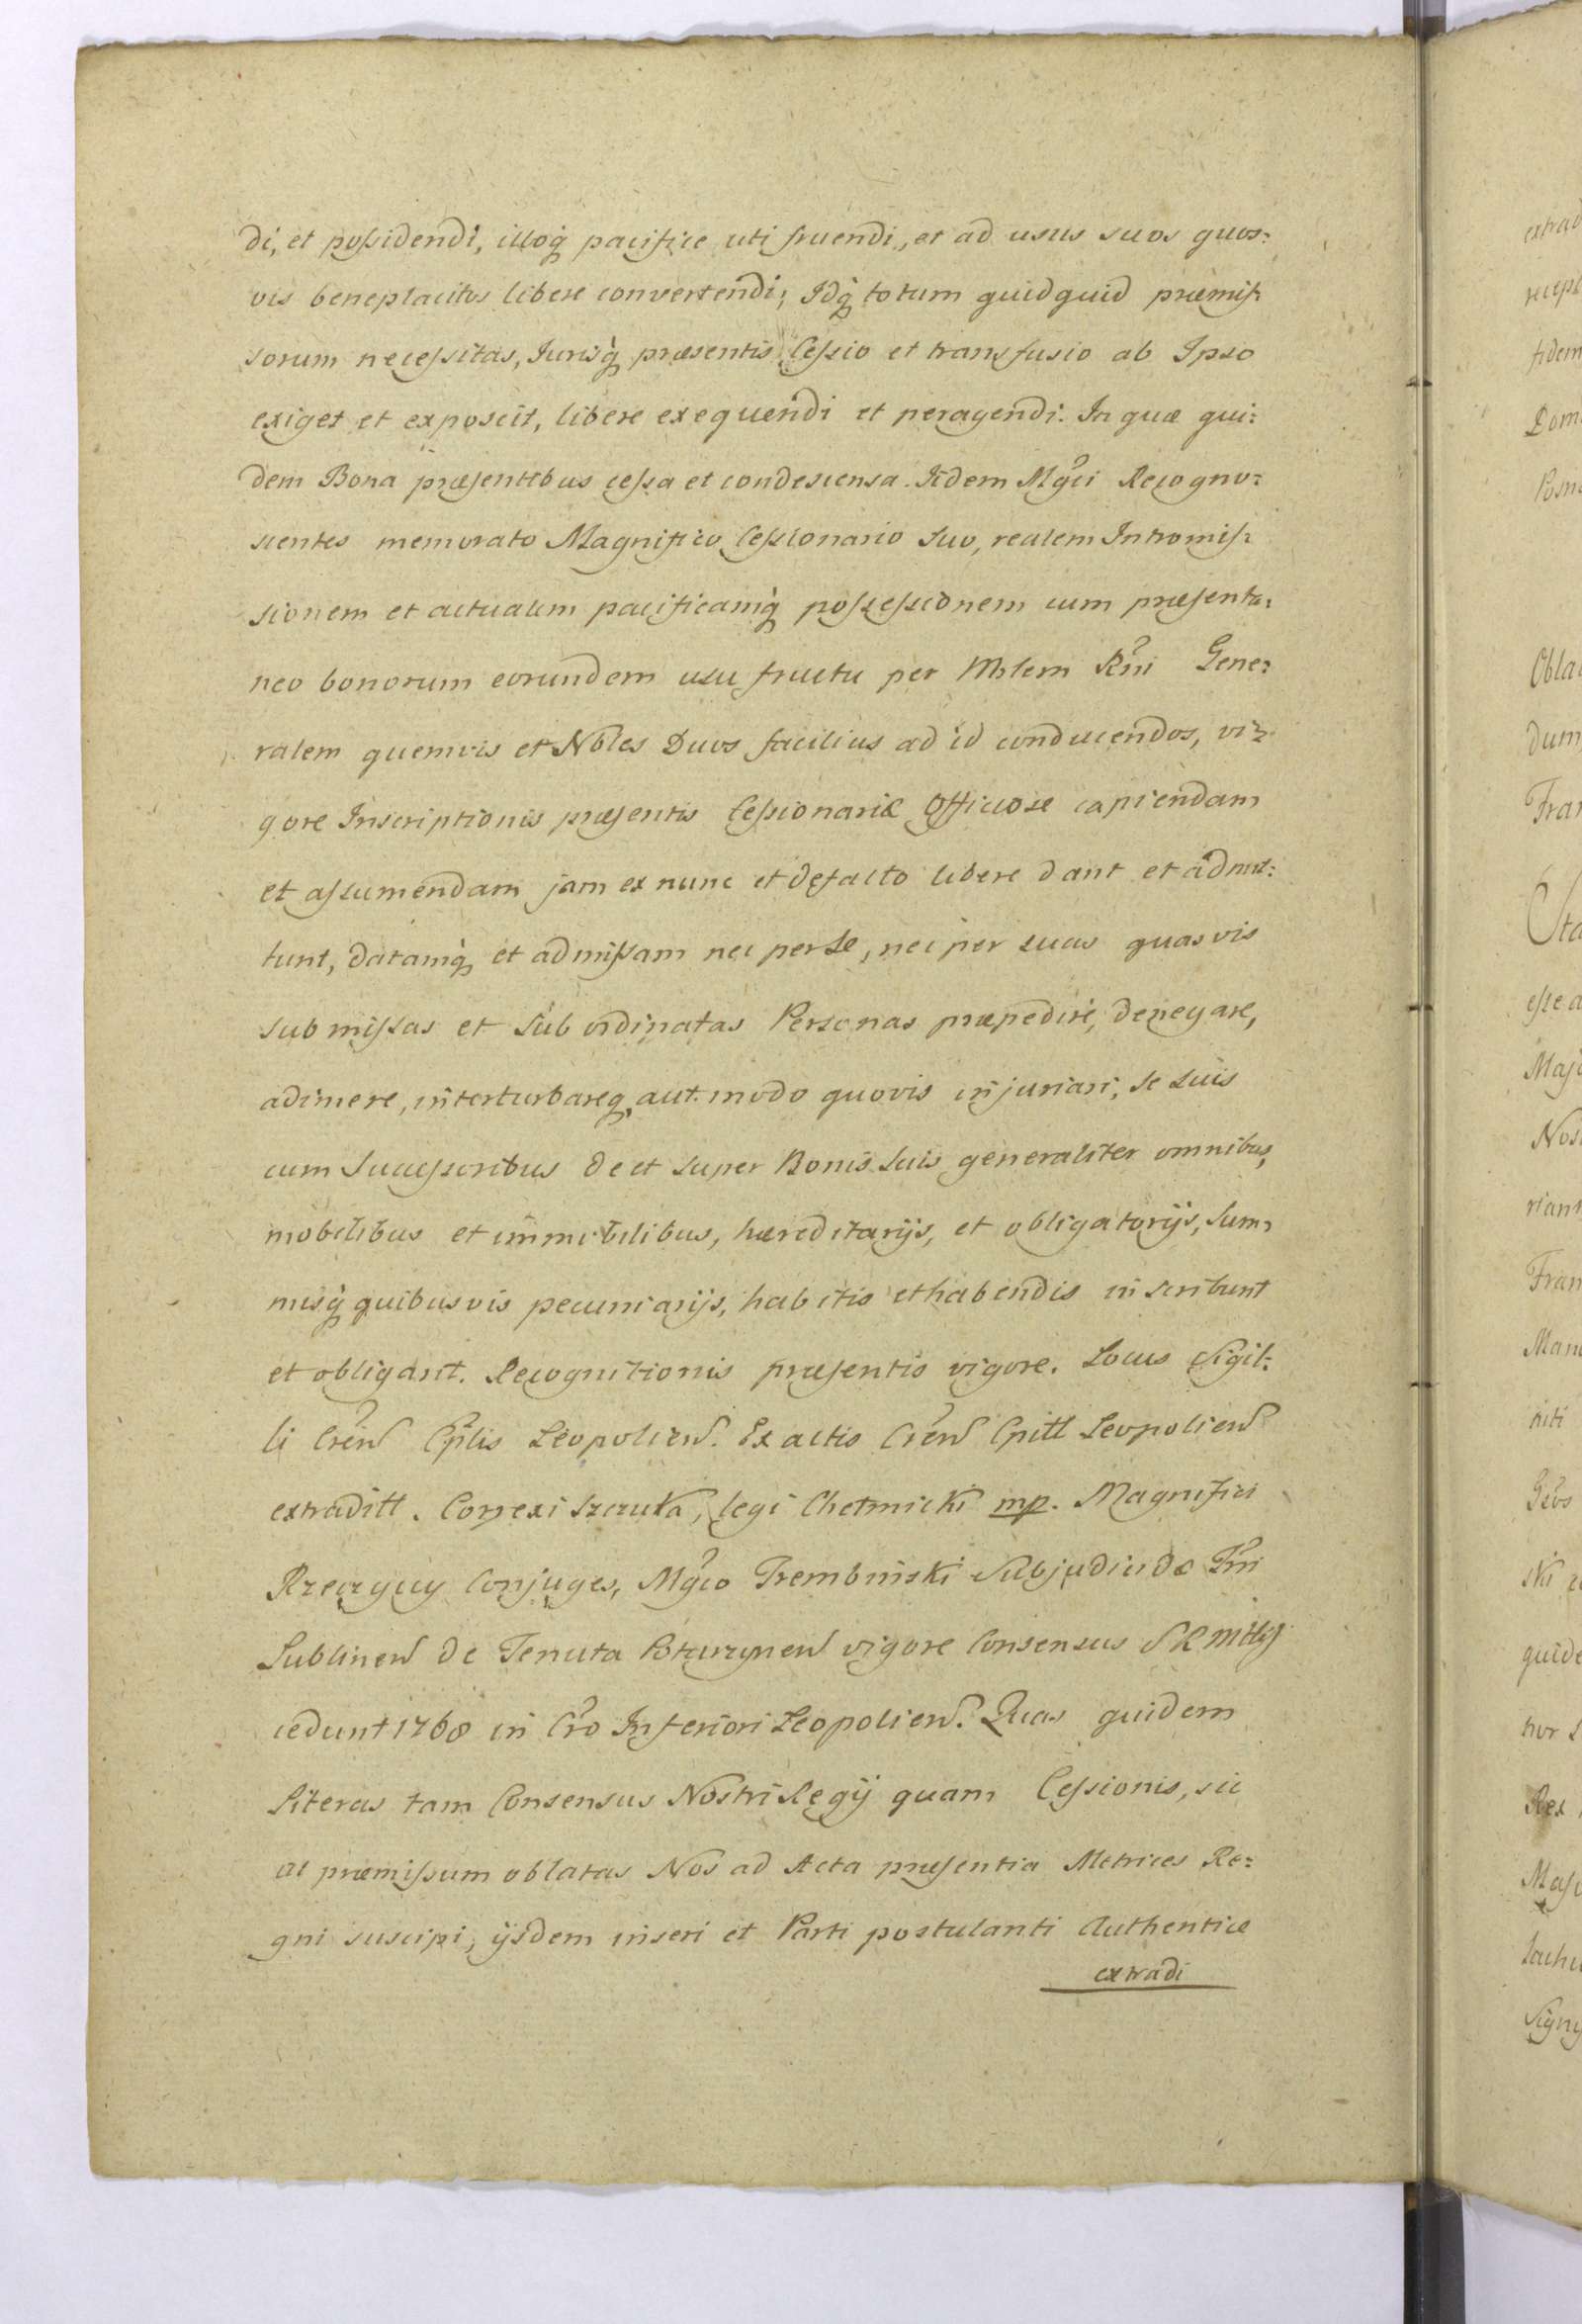 di, et possidendi, illoq́ pacifice uti fruendi, et ad usus suos quos:
vis beneplacitos libere convertendi; Idq́ totum quidquid præmis:
sorum necessitas, Jurisq́ præsentis Cessio et transfusio ab Ipso
exiget et exposcit, libere exequendi et peragendi. In quæ qui:
dem Bona præsentibus cessa et condescensa Iidem Mgci Recogno:
scentes memorato Magnifico Cessionario Suo, realem Intromis:
sionem et actualem pacificamq́ possessionem cum præsenta:
neo bonorum eorundem usu fructu per Mlem Rni Gene:
ralem quemvis et Nobles Duos facilius ad id conducendos, vi:
gore Inscriptionis præsentis Cessionariæ Officiose capiendam
et assumendam jam ex nunc et defacto libere dant et admit:
tunt, datamq́ et admissam nec per Se, nec per suas quasvis
submissas et Subordinatas Personas præpedire, denegare,
adimere, interturbareq, aut modo quovis injuriari, Se Suis
cum Successoribus de et super Bonis Suis generaliter omnibus,
mobilibus et immobilibus, hæreditarijs, et obligatorijs, Sum:
misq́ quibusvis pecuniarijs, habitis et habendis inscribunt
et obligant. Recognitionis præsentis vigore. Locus Sigil:
li Cren Cplis Leopolien. Ex actis Cren Cpitl Leopolien
extraditt. Correxi Szczuka, legi Chetmicki mp. Magnifici
Rzeczyccy Conjuges, Mgco Trembinski Subjudici de Tni
Lublinen de Tenuta Poturzynen vigore Consensus S R Mttis
cedunt 1768 in Cro Inferiori Leopolien. Quas quidem
Literas tam Consensus Nostri Regij quam Cessionis, sic
ac præmissum oblatas Nos ad Acta præsentia Metrices Re:
gni suscipi, ijsdem inseri et Parti postulanti Authentice
extradi